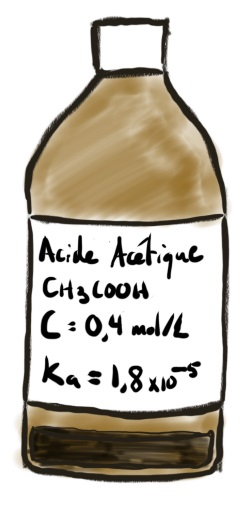 Acide Acétique
CH3COOH
C = 0,4 mol/L
Ka = 1,8 x10⁻⁵